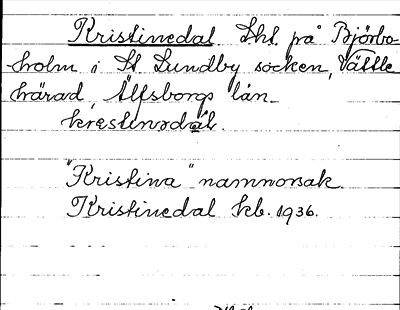 Kristinedal Lht. på Björbo-
holm i St. Lundby socken, Vättle
härad, Älfsborgs län.
"Kristina" namnorsak.
Kristinedal kb. 1936.